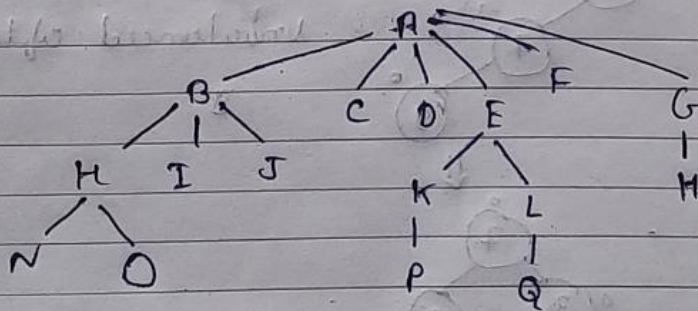 A
B C D E F G
H I J K L H
N O P Q